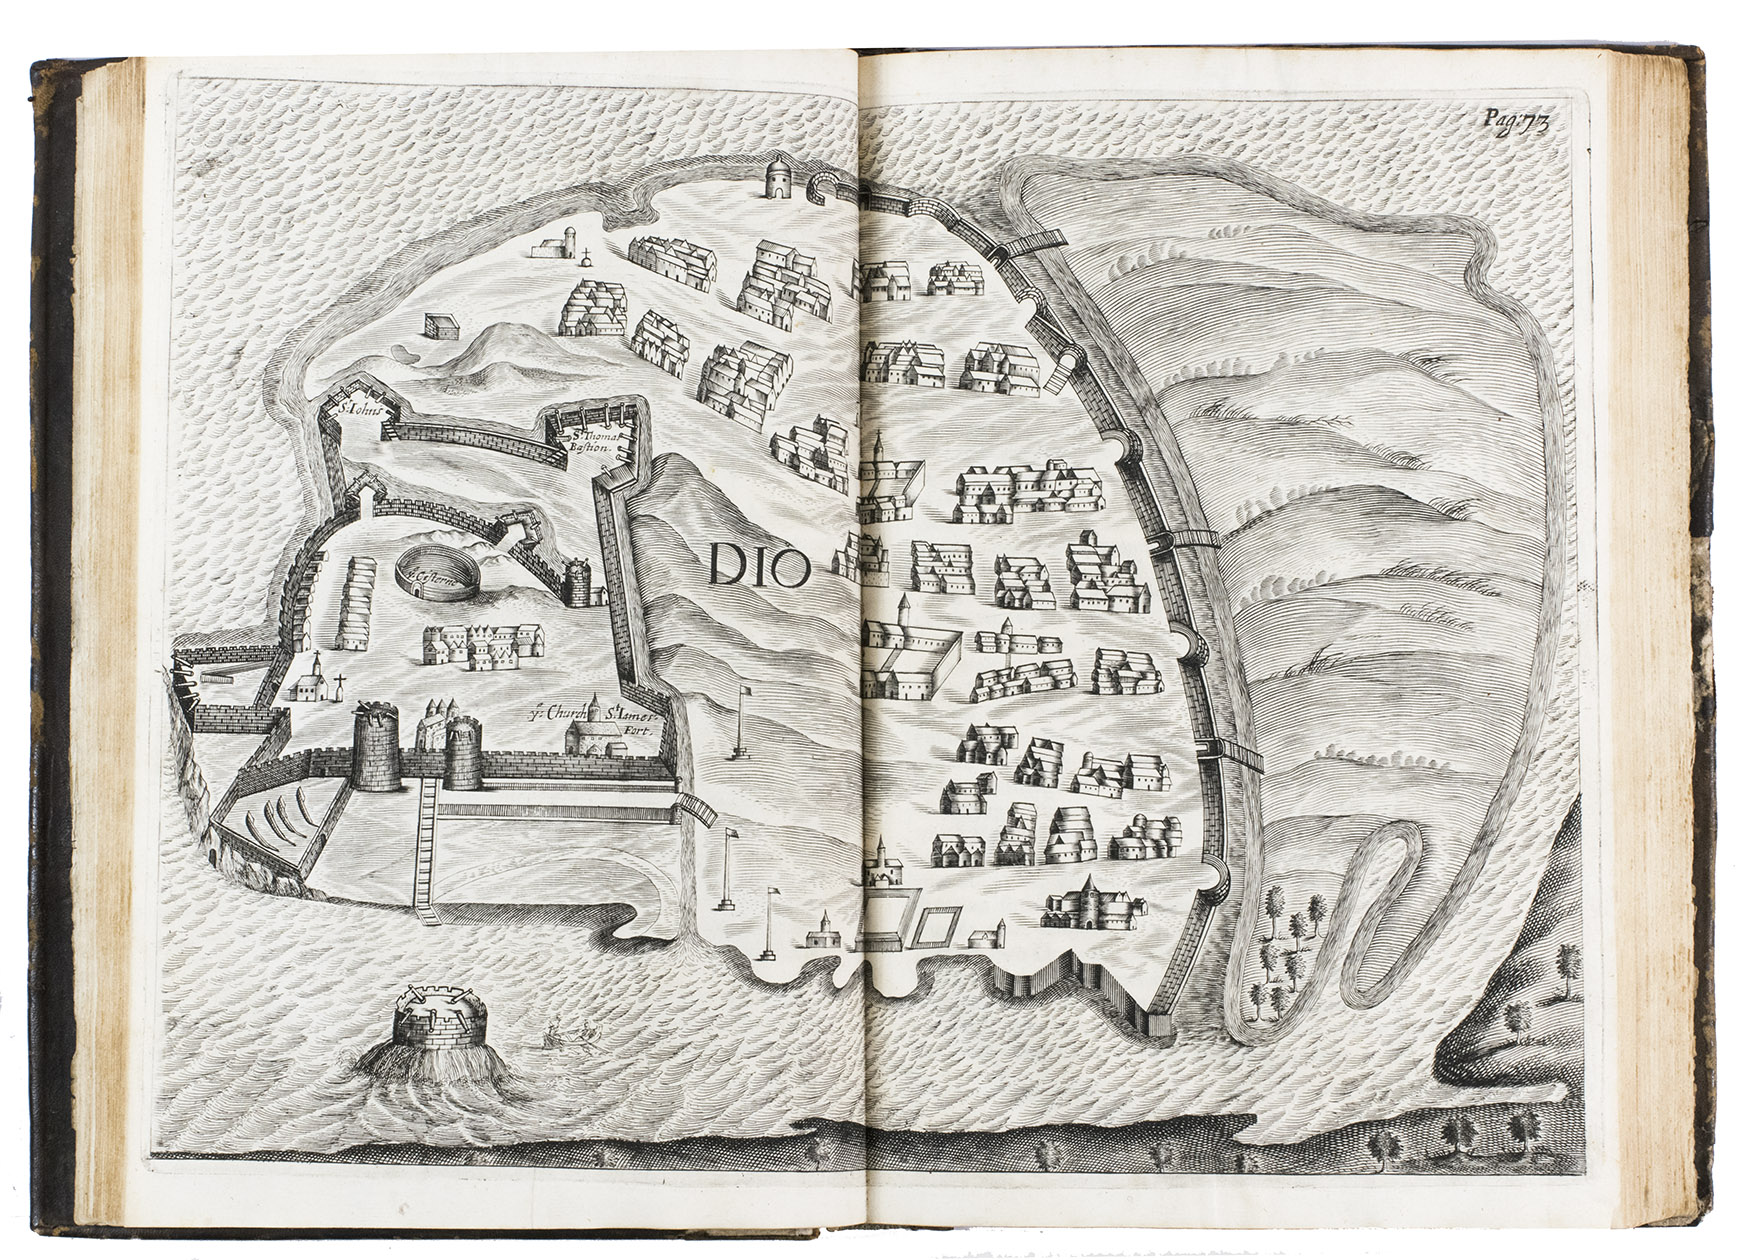 Pag:73
St. Iohns
St. Thomas
Bastion.
DIO
ye. Cisterne
ye. Church St. Iames
Fort.